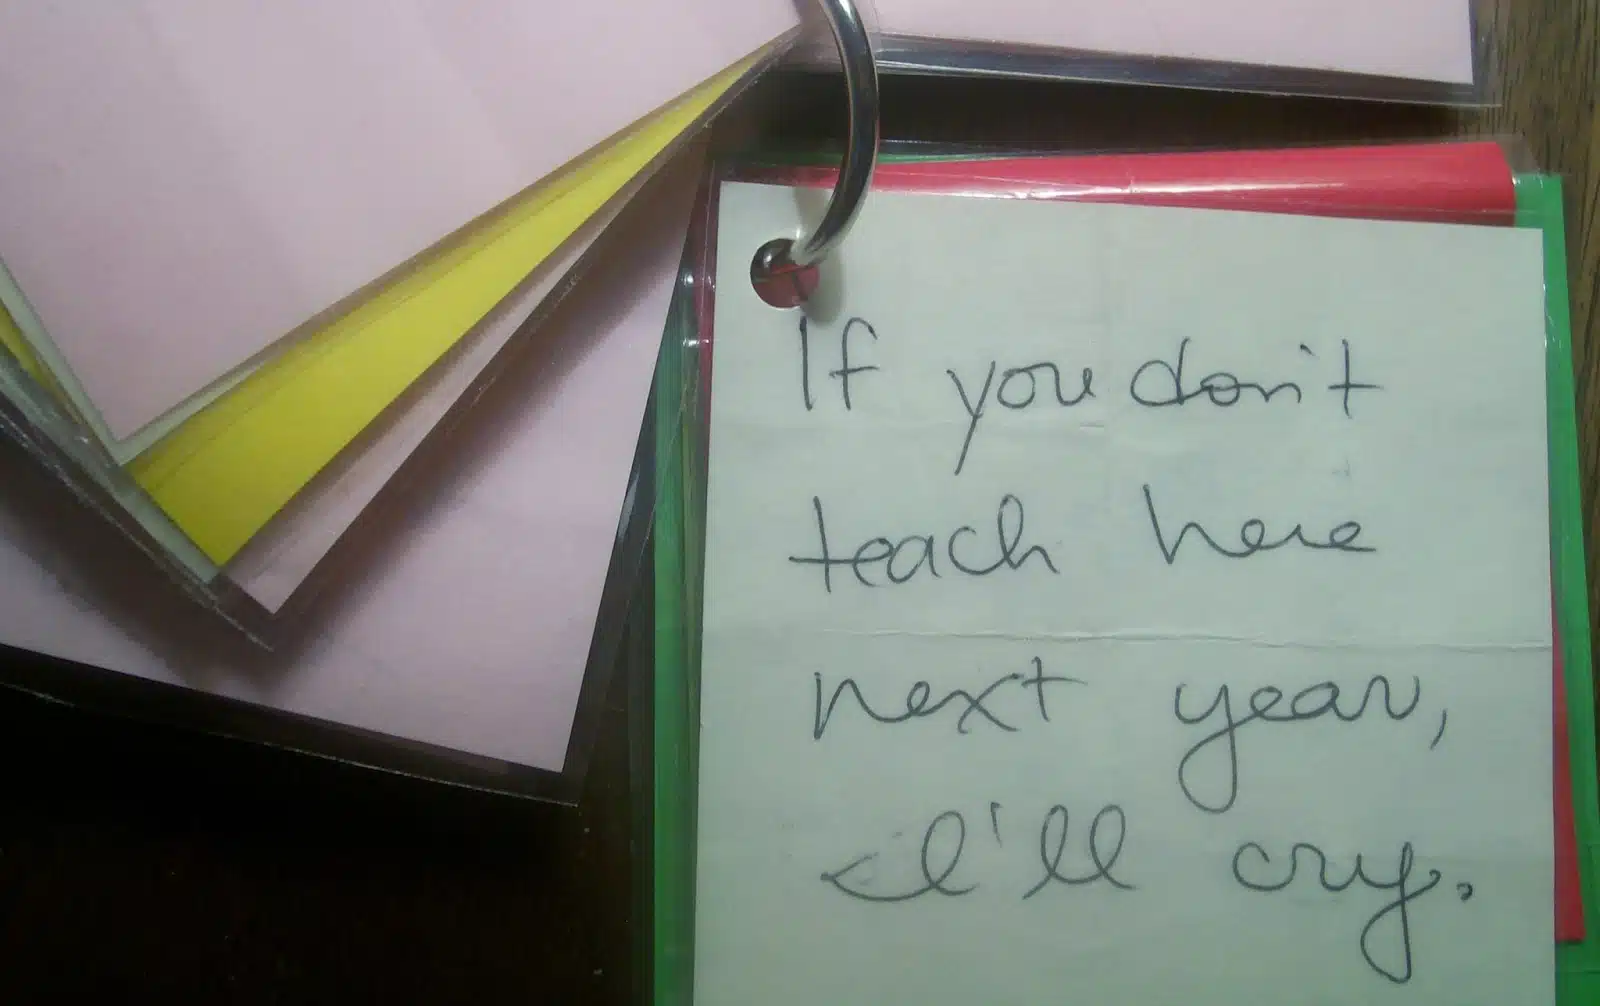 If you don't
teach here
next year,
I'll cry.